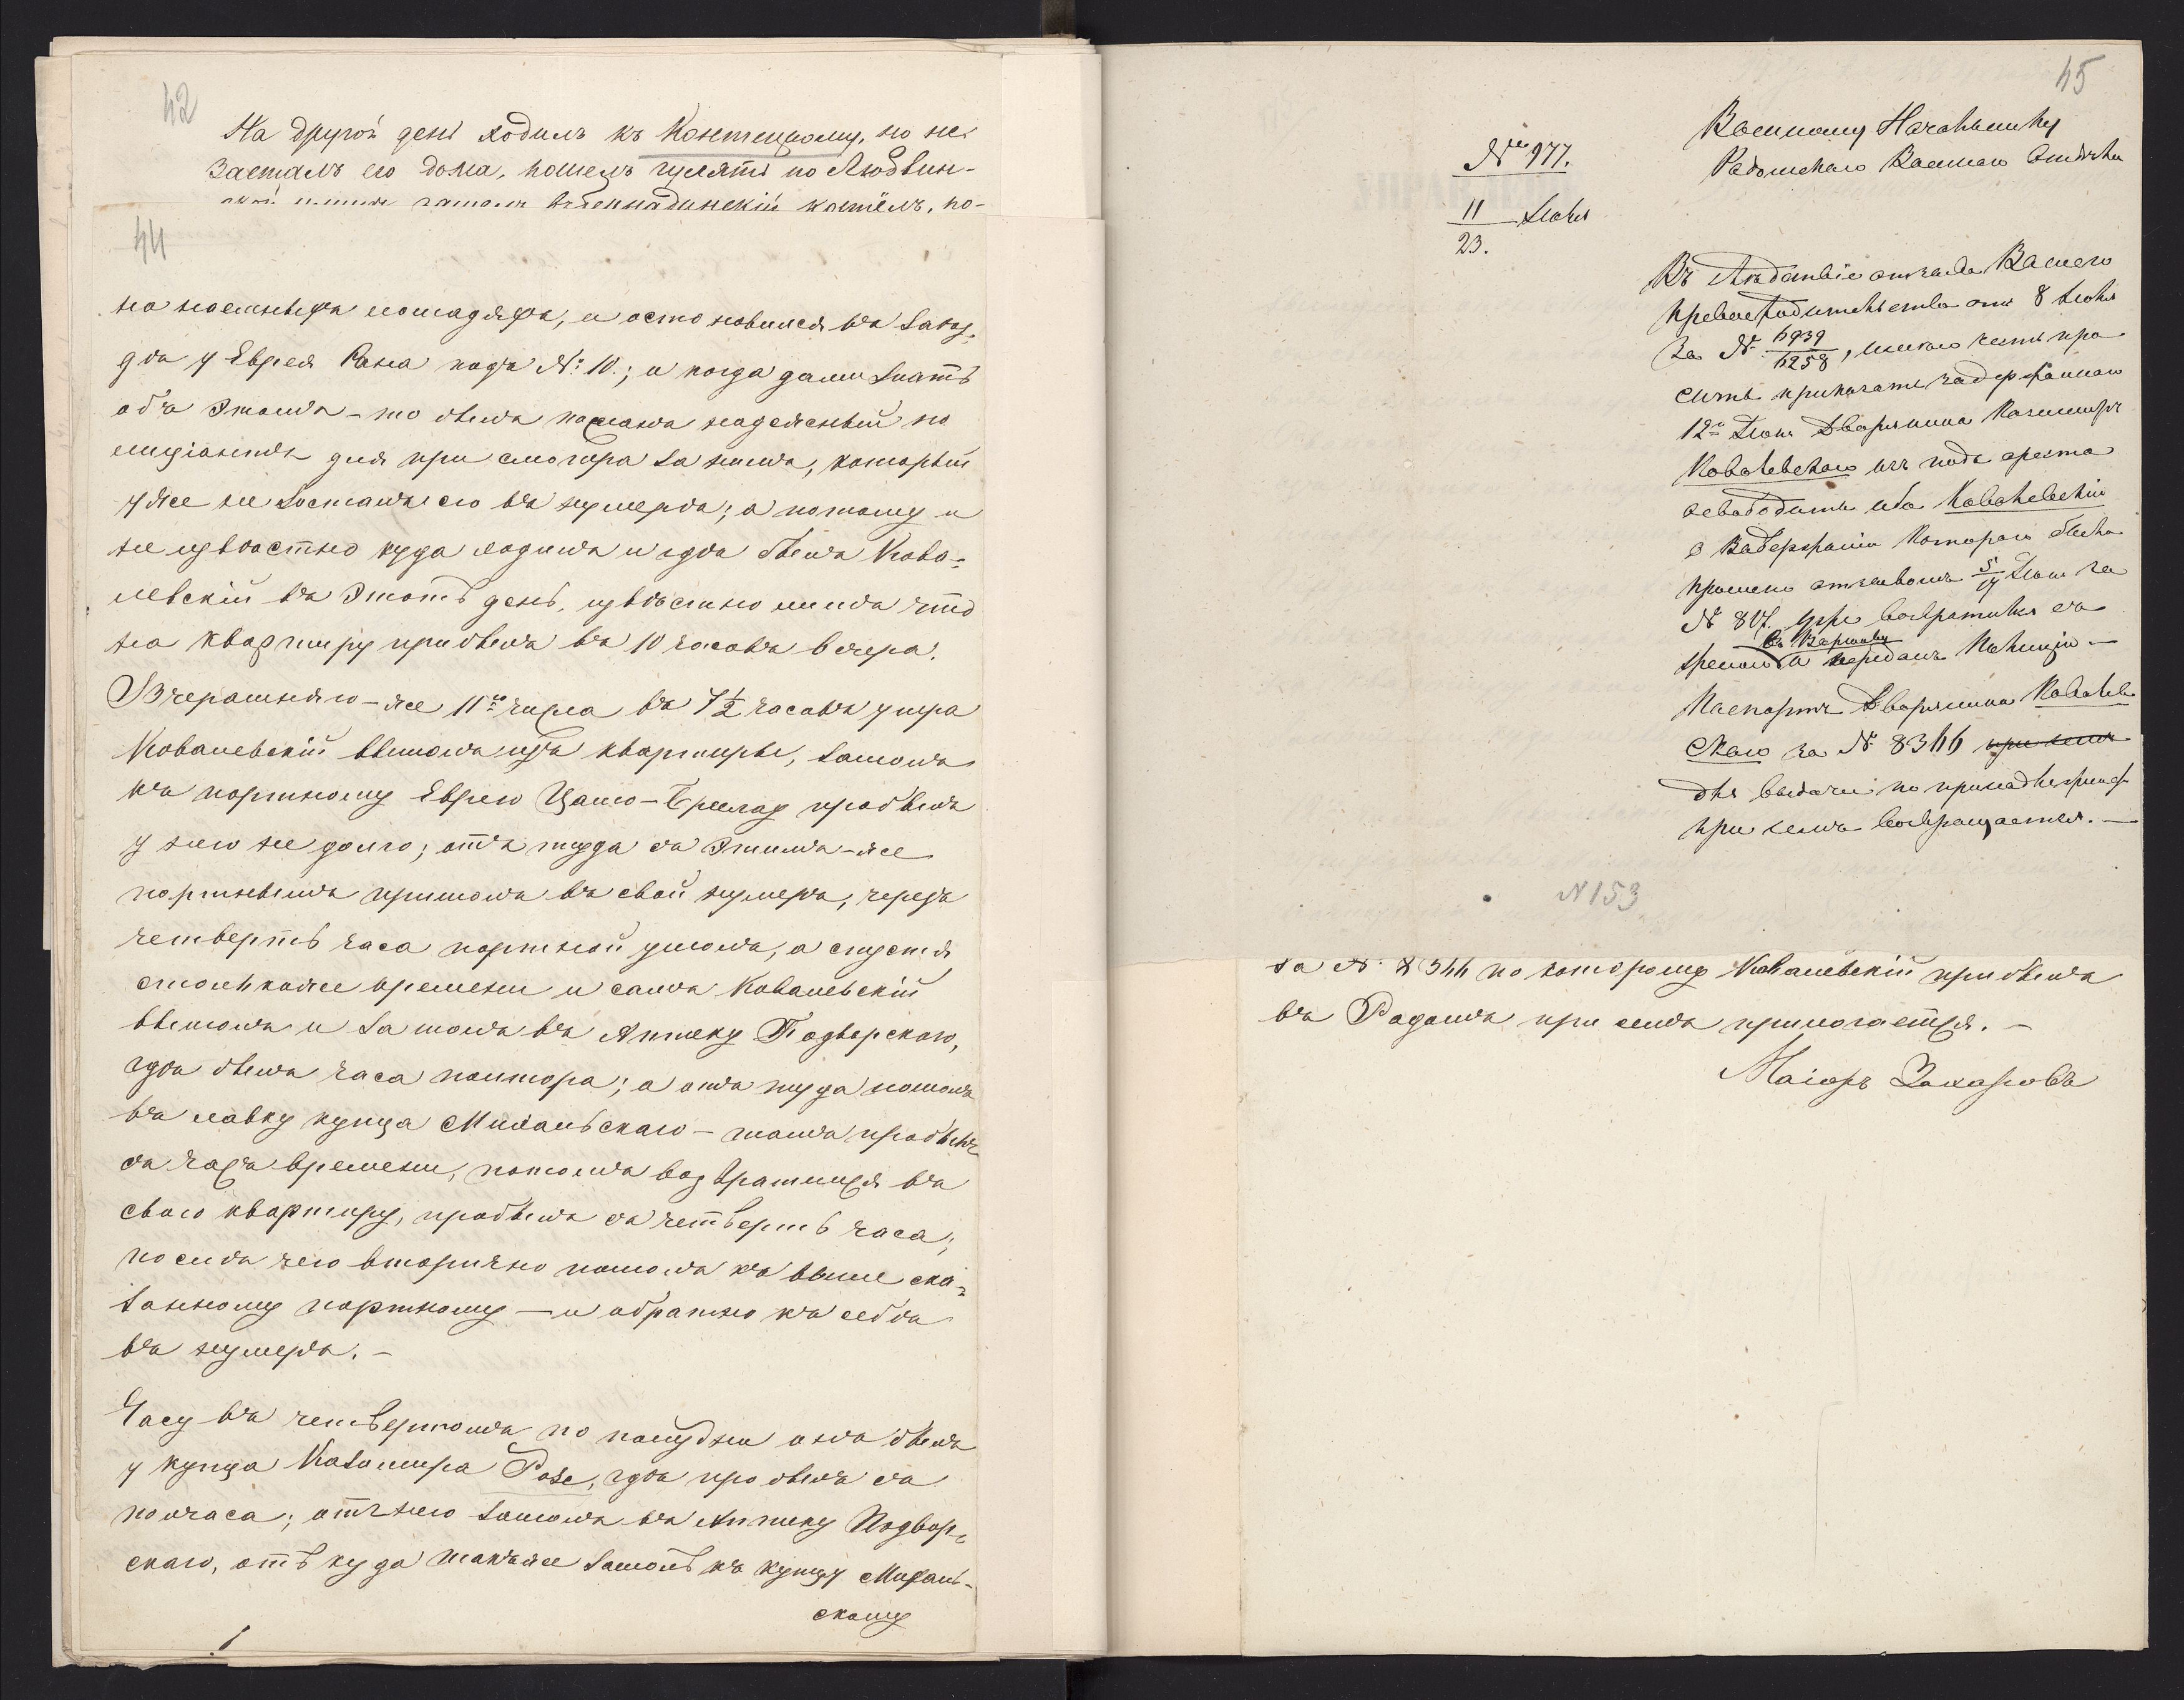 42
На другой день ходилъ къ Контецкому, но не
засталъ его дома, пошелъ гулять по Людвин-
костёлъ, по-
44
на наемныхъ лошадяхъ, и остановился въ заѣз-
дѣ у Еврея Рана подъ №: 10.; и когда дали знать
объ этомъ – то былъ посланъ надежный по
лиціантъ для присмотра за нимъ, который
уже не засталъ его въ нумерѣ; а потому и
не извѣстно куда ходилъ и гдѣ былъ Кова-
левскій въ этотъ день, извѣстно лишь что
на квартиру прибылъ въ 10 часовъ вечера.
Вчерашняго – же 11го числа въ 7½ часовъ утра
Ковалевскій вышолъ изъ квартиры, зашолъ
къ портному Еврею пробылъ
у него не долго; отъ туда съ этимъ – же
портнымъ пришолъ въ свой нумеръ, черезъ
четверть часа портной ушолъ, а спустя
столькоже времени и самъ Ковалевскій
вышолъ и зашолъ въ Аптеку Подворскаго,
гдѣ былъ часа полтора; а отъ туда пошолъ
въ лавку купца Михальскаго – тамъ пробылъ
съ часъ времени, потомъ возвратился въ
свою квартиру, пробылъ съ четверть часа;
послѣ чего вторично пошолъ къ выше ска-
занному портному — и обратно къ себѣ
въ нумеръ. –
Часу въ четвертомъ по полудни онъ былъ
у купца Казимира Розе, гдѣ пробылъ съ
полчаса; отъ него зашолъ въ Аптеку Подвор-
скаго, отъ куда такъже зашолъ къ купцу Михаль-
скому
45
№ 977.
11
23. Іюня
Военному Начальнику
Радомскаго Военнаго Отдѣла
Въ слѣдствіе отзыва Вашего
Превосходительства отъ 8 Іюня
за № 6939/6258, имѣю честь про
сить приказать задержаннаго
12го Іюня Дворянина Казимира
Ковалевскаго изъ подъ ареста
освободить ибо Ковалевскій
о задержаніи котораго было
прошено отзывомъ 5/17 Іюня за
№ 807. уже возвратился съ
въ Варшаву
и переданъ Полиціи —
Паспортъ Дворянина Ковалев
скаго за № 8366 при семъ
для выдачи по принадлежност
при семъ возвращается. —
N 153
за №. 8366 по которому Ковалевскій прибылъ
въ Радомъ при семъ прилагается. –
Маіоръ Захаровъ